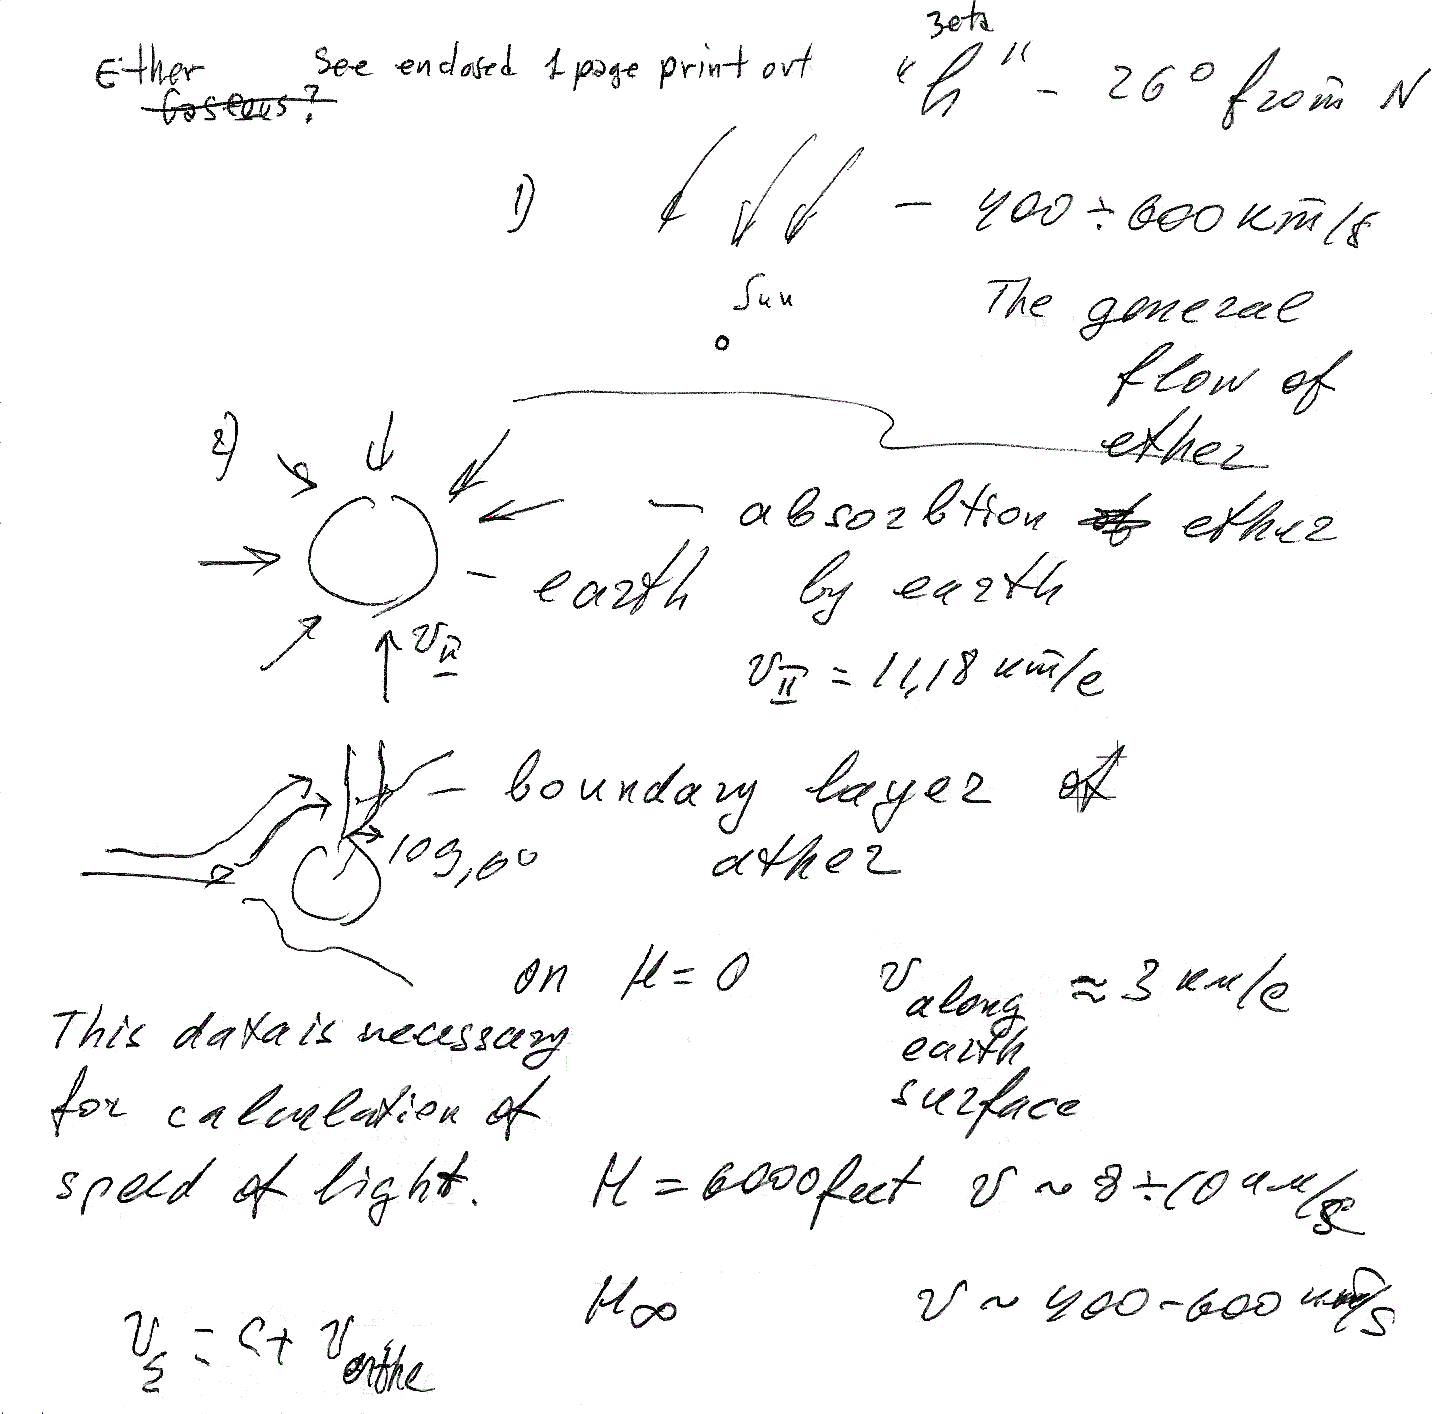 Ether See enclosed 1 page print out
Zeta
Gaseous?
"h" - 26° from N
1) — 400 ÷ 600 km/s
Sun
The general
flow of
ether
2)
— absorbtion of ether
by earth
— earth
v_II
v_II = 11,18 km/c
— boundary layer of
ather
109,6°
on H = 0 v along earth surface ≈ 3 км/c
This data is necessary
for calculation of
speed of light.
H = 6000 feet v ~ 8 ÷ 10 км/s
H∞ v ~ 400 - 600 км/s
v_Σ = c + v